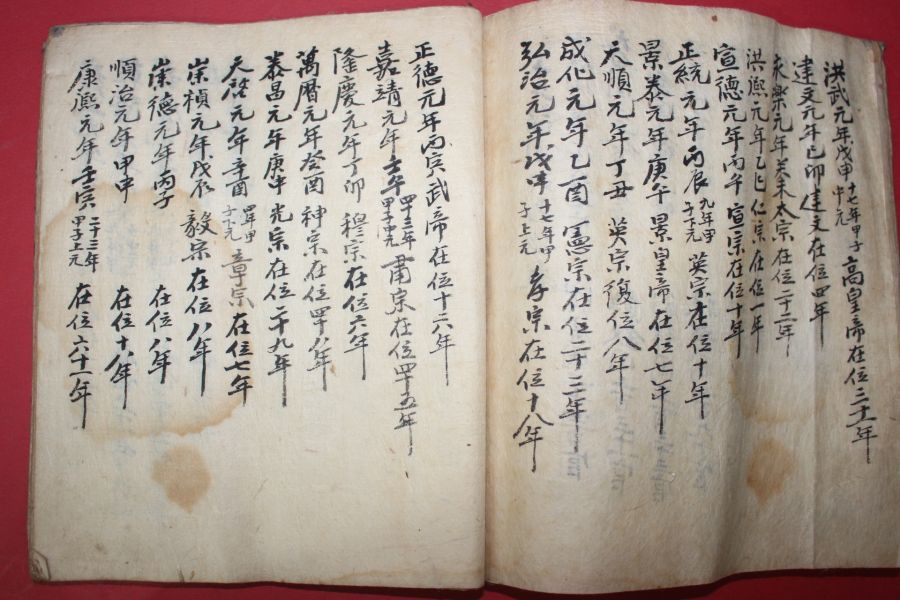 洪武元年戊申 十七年甲子中元 高皇帝在位三十一年
建文元年己卯 建文在位四年
永樂元年癸未 太宗在位二十二年
洪熙元年乙巳 仁宗在位一年
宣德元年丙午 宣宗在位十年
正統元年丙辰 九年甲子下元 英宗在位十年
景泰元年庚午 景皇帝在位七年
天順元年丁丑 英宗復位八年
成化元年乙酉 憲宗在位二十三年
弘治元年戊申 十七年甲子上元 孝宗在位十八年
正德元年丙寅 武帝在位十六年
嘉靖元年壬午 四十三年甲子中元 肅宗在位四十五年
隆慶元年丁卯 穆宗在位六年
萬曆元年癸酉 神宗在位四十八年
泰昌元年庚申 光宗在位二十九年
天啓元年辛酉 四年甲子下元 章宗在位七年
崇禎元年戊辰 毅宗在位八年
崇德元年丙子 在位八年
順治元年甲申 在位十八年
康熙元年壬寅 二十三年甲子上元 在位六十一年